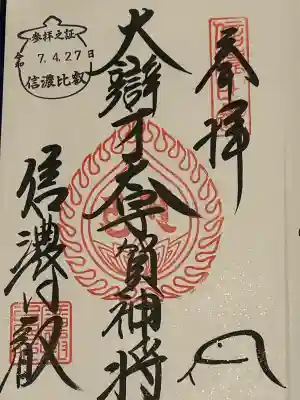 奉拝
大辯才天宇賀神将
信濃比叡
参拝之証
令和 7.4.27日
信濃比叡